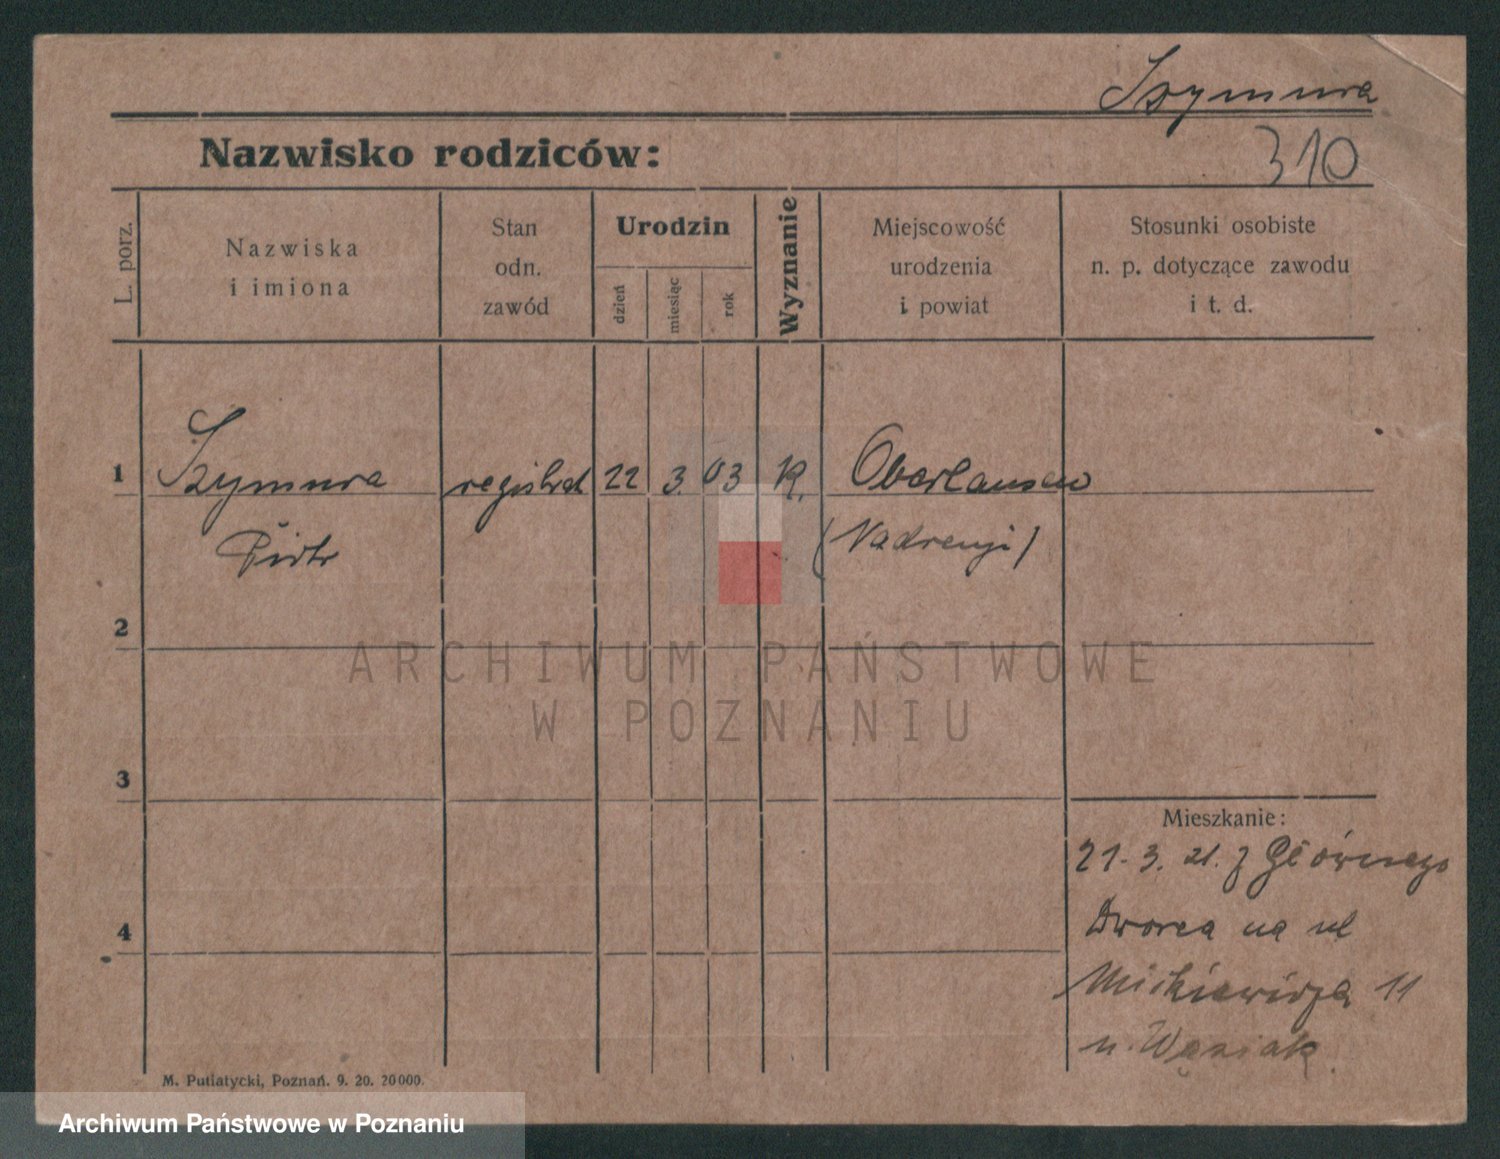 Szymura
310
Nazwisko rodziców:
L. porz.
Nazwiska
i imiona
Stan
odn.
zawód
Urodzin
dzień
miesiąc
rok
Wyznanie
Miejscowość
urodzenia
i powiat
Stosunki osobiste
n. p. dotyczące zawodu
i t. d.
1
Szymura registrat 22 3. 03 K.
Piotr
(Nadrenji)
2
ARCHIWUM PAŃSTWOWE
W POZNANIU
3
Mieszkanie:
21. 3. 21. z Głównego
4
Dworca na ul
Mickiewicza 11
u. Węziak
M. Putiatycki, Poznań. 9. 20. 20000.
Archiwum Państwowe w Poznaniu